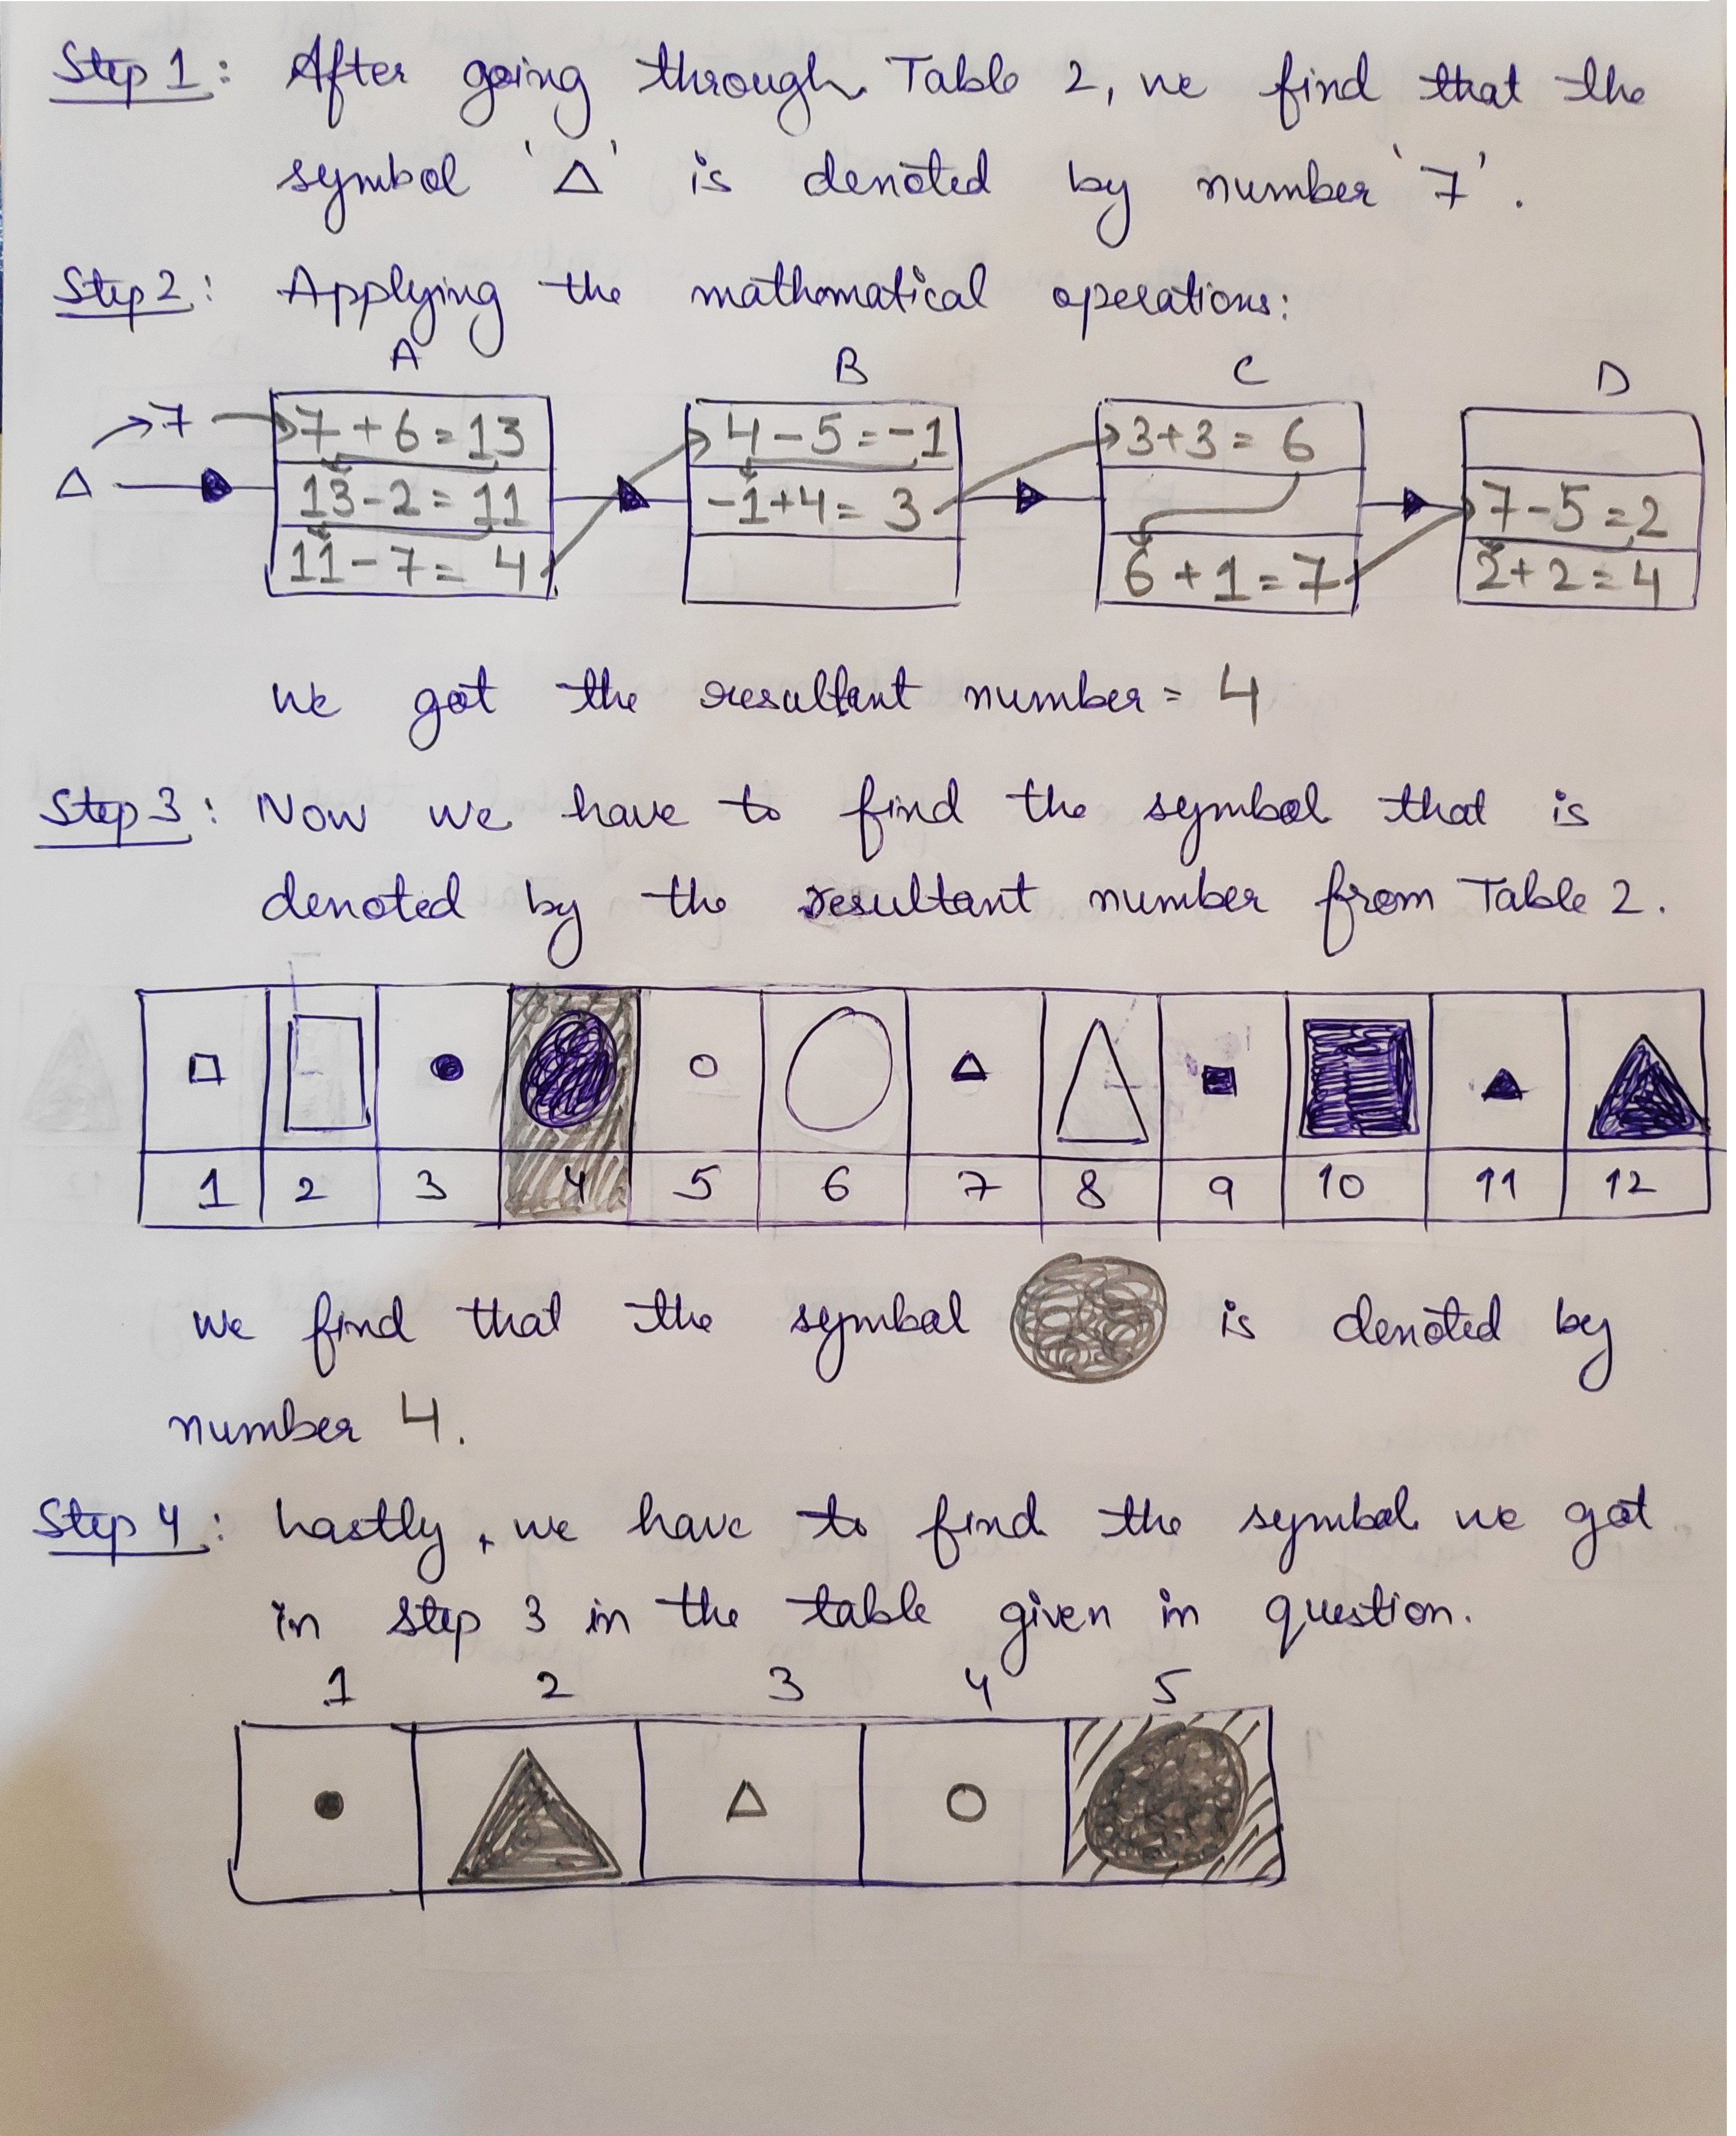 Step 1: After going through Table 2, we find that the
symbol '△' is denoted by number '7'.
Step 2: Applying the mathematical operations:
A B C D
7
△
7 + 6 = 13
13 - 2 = 11
11 - 7 = 4
4 - 5 = -1
-1 + 4 = 3
3 + 3 = 6
6 + 1 = 7
7 - 5 = 2
2 + 2 = 4
we got the resultant number = 4
Step 3: Now we have to find the symbol that is
denoted by the resultant number from Table 2.
1 2 3 4 5 6 7 8 9 10 11 12
we find that the symbol is denoted by
number 4.
Step 4: Lastly, we have to find the symbol we got
in step 3 in the table given in question.
1 2 3 4 5